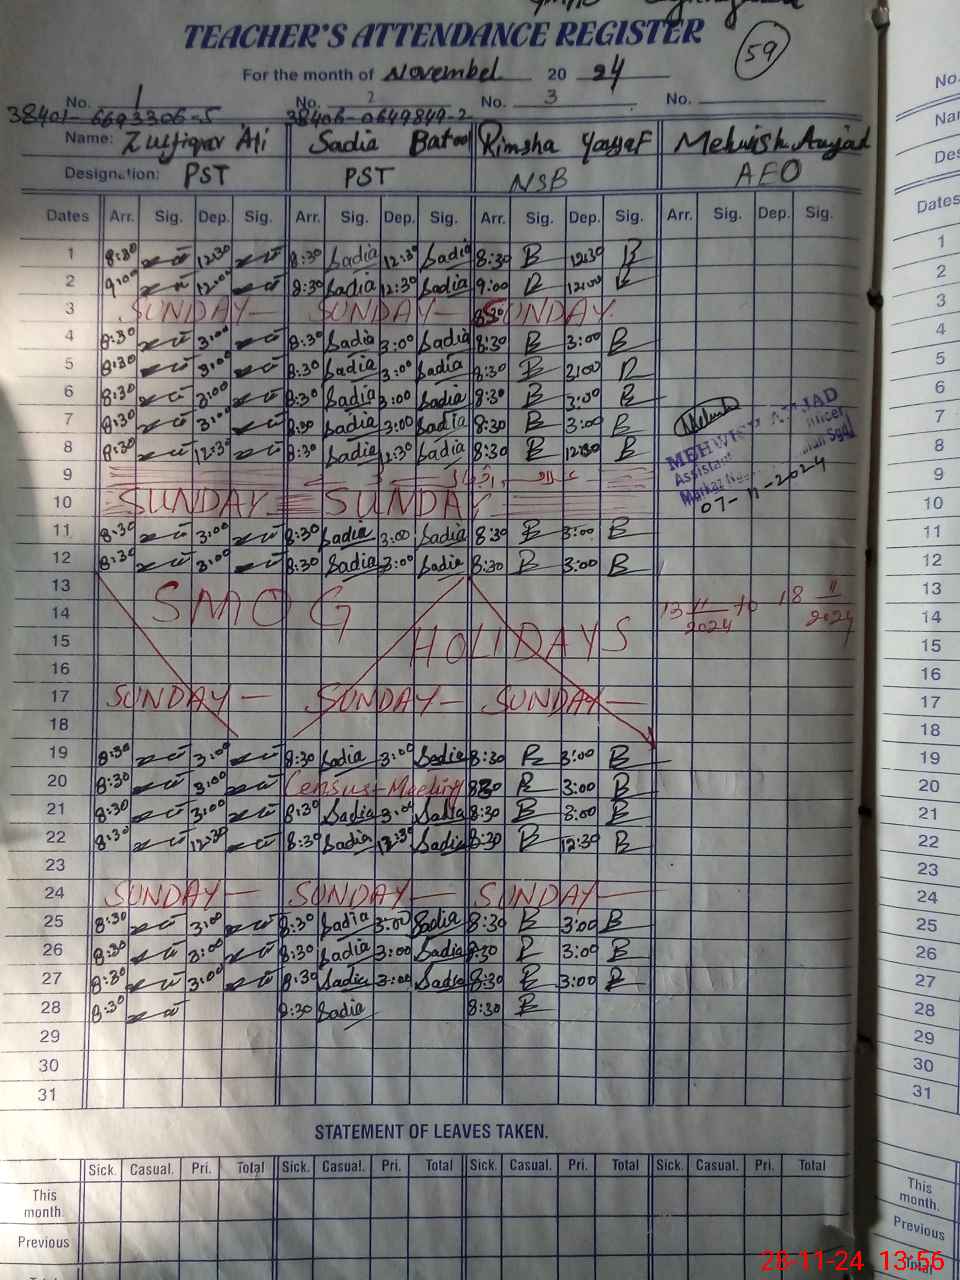 TEACHER'S ATTENDANCE REGISTER
59
For the month of November 20 24
No. 1 No. 2 No. 3 No.
38401-6693306-5 38406-0649849-2
Name: Zulfiqar Ali Sadia Batool Rimsha Mehwish Amjad
Designation: PST PST NSB AEO
Dates Arr. Sig. Dep. Sig. Arr. Sig. Dep. Sig. Arr. Sig. Dep. Sig. Arr. Sig. Dep. Sig.
1 8:30 12:30 8:30 Sadia 12:30 Sadia 8:30 B 12:30 B
2 9:00 12:00 8:30 Sadia 12:30 Sadia 9:00 B 12:00 B
3 SUNDAY- SUNDAY- SUNDAY.
4 8:30 3:00 8:30 Sadia 3:00 Sadia 8:30 B 3:00 B
5 8:30 3:00 8:30 Sadia 3:00 Sadia 8:30 B 3:00 B
6 8:30 3:00 8:30 Sadia 3:00 Sadia 8:30 B 3:00 B
7 8:30 3:00 8:30 Sadia 3:00 Sadia 8:30 B 3:00 B
8 8:30 12:30 8:30 Sadia 12:30 Sadia 8:30 B 12:30 B
MEHWISH AMJAD
Assistant Officer
Markaz
07-11-2024
9
10 SUNDAY. SUNDAY
11 8:30 3:00 8:30 Sadia 3:00 Sadia 8:30 B 3:00 B
12 8:30 3:00 8:30 Sadia 3:00 Sadia 8:30 B 3:00 B
13 SMOG 13 11/2024 to 18 11/2024
14
15 HOLIDAYS
16
17 SUNDAY- SUNDAY- SUNDAY-
18
19 8:30 3:00 8:30 Sadia 3:00 Sadia 8:30 B 3:00 B
20 8:30 3:00 Census-Meeting 8:30 B 3:00 B
21 8:30 3:00 8:30 Sadia 3:00 Sadia 8:30 B 3:00 B
22 8:30 12:30 8:30 Sadia 12:30 Sadia 8:30 B 12:30 B
23
24 SUNDAY- SUNDAY- SUNDAY-
25 8:30 3:00 8:30 Sadia 3:00 Sadia 8:30 B 3:00 B
26 8:30 3:00 8:30 Sadia 3:00 Sadia 8:30 B 3:00 B
27 8:30 3:00 8:30 Sadia 3:00 Sadia 8:30 B 3:00 B
28 8:30 8:30 Sadia 8:30 B
29
30
31
STATEMENT OF LEAVES TAKEN.
Sick. Casual. Pri. Total Sick. Casual. Pri. Total Sick. Casual. Pri. Total Sick. Casual. Pri. Total
This
month.
Previous
No.
Dates
1
2
3
4
5
6
7
8
9
10
11
12
13
14
15
16
17
18
19
20
21
22
23
24
25
26
27
28
29
30
31
This
month.
Previous
Total
28-11-24 13:56